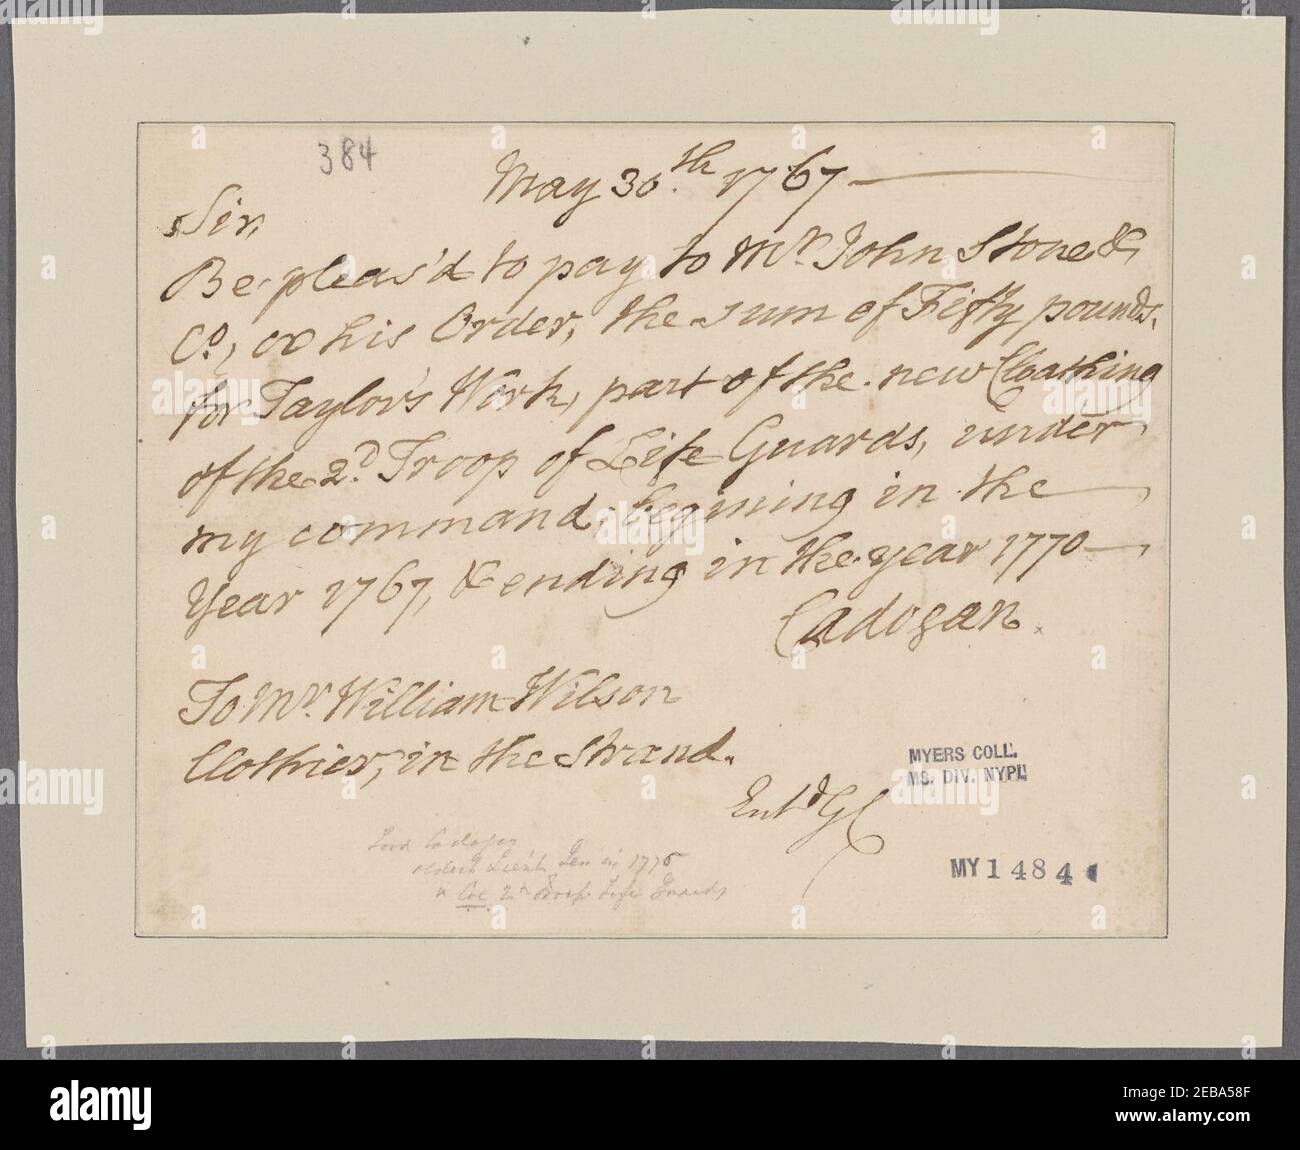 384
May 30th 1767
Sir,
Be pleas'd to pay to Mr. John Stone &
Co, or his Order, the sum of Fifty pounds,
for Taylor's Work, part of the new Cloathing
of the 2d. Troop of Life Guards, under
my command, begining in the
Year 1767, & ending in the year 1770
Cadogan
To Mr. William Wilson
Clothier, in the Strand.
MYERS COLL.
MS. DIV. NYPL
Entd
Lord Cadogan
Lieut Gen in 1776
Col 2d Troop Life Guards
MY 1484
alamy
Image ID: 2EBA58F
www.alamy.com